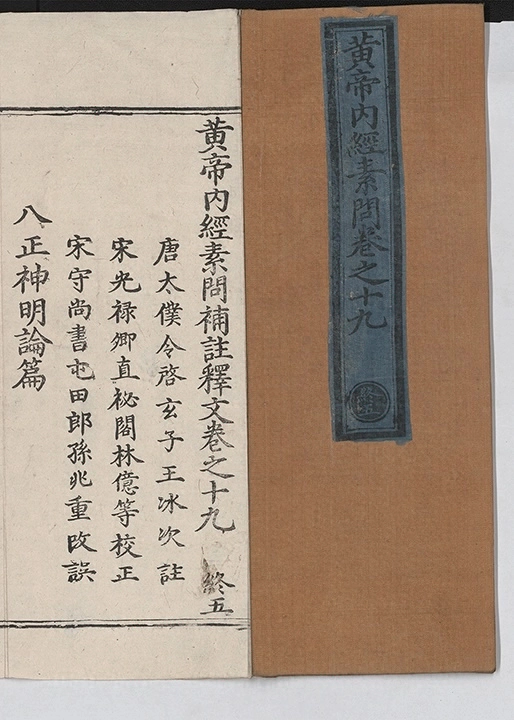 黃帝内經素問卷之十九
終五
黃帝内經素問補註釋文卷之十九 終五
唐太僕令啓玄子王冰次註
宋光禄卿直祕閣林億等校正
宋守尚書屯田郎孫兆重改誤
八正神明論篇